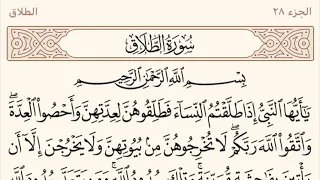 الطلاق
الجزء ٢٨
سُورَةُ الطَّلَاقِ
بِسْمِ اللَّهِ الرَّحْمَٰنِ الرَّحِيمِ
يَٰٓأَيُّهَا ٱلنَّبِيُّ إِذَا طَلَّقْتُمُ ٱلنِّسَآءَ فَطَلِّقُوهُنَّ لِعِدَّتِهِنَّ وَأَحْصُوا۟ ٱلْعِدَّةَ ۖ
وَٱتَّقُوا۟ ٱللَّهَ رَبَّكُمْ ۖ لَا تُخْرِجُوهُنَّ مِنۢ بُيُوتِهِنَّ وَلَا يَخْرُجْنَ إِلَّآ أَن